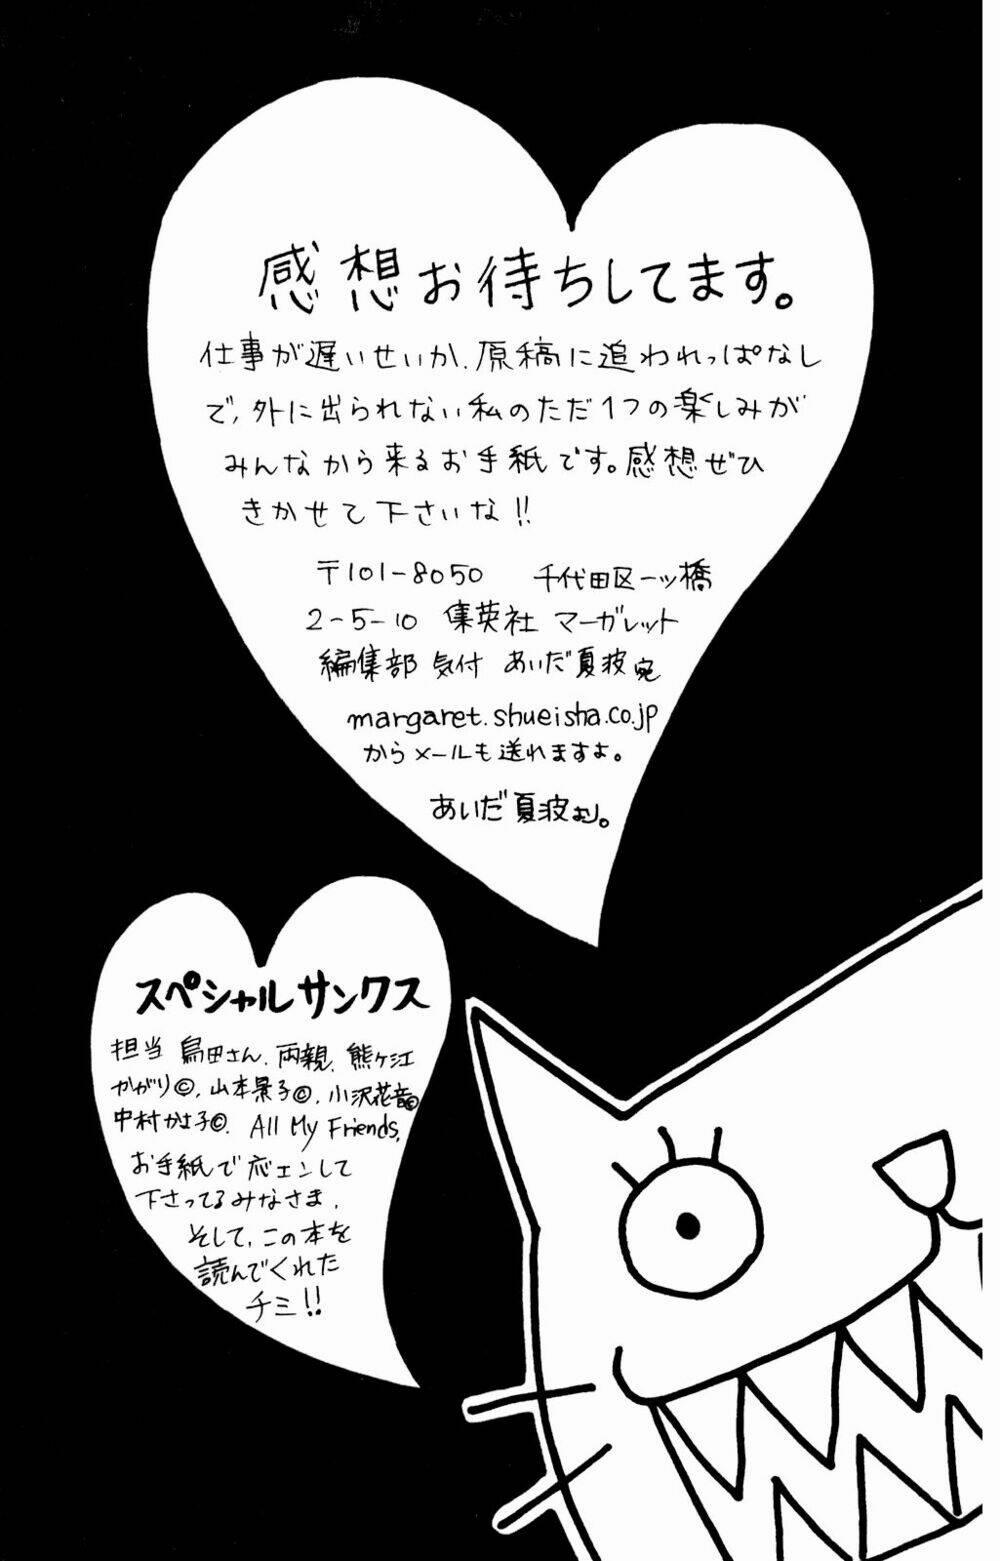 感想お待ちしてます。
仕事が遅いせいか、原稿に追われっぱなし
で、外に出られない私のただ1つの楽しみが
みんなから来るお手紙です。感想ぜひ
きかせて下さいな!!
〒101-8050 千代田区一ッ橋
2-5-10 集英社 マーガレット
編集部 気付 あいだ夏波宛
margaret.shueisha.co.jp
からメールも送れますよ。
あいだ夏波より。
スペシャルサンクス
担当 鳥田さん、両親、熊ヶ江
かがり©、山本景子©、小沢花音©
中村かさ子©、All My Friends,
お手紙で応エンして
下さってるみなさま、
そして、この本を
読んでくれた
チミ!!